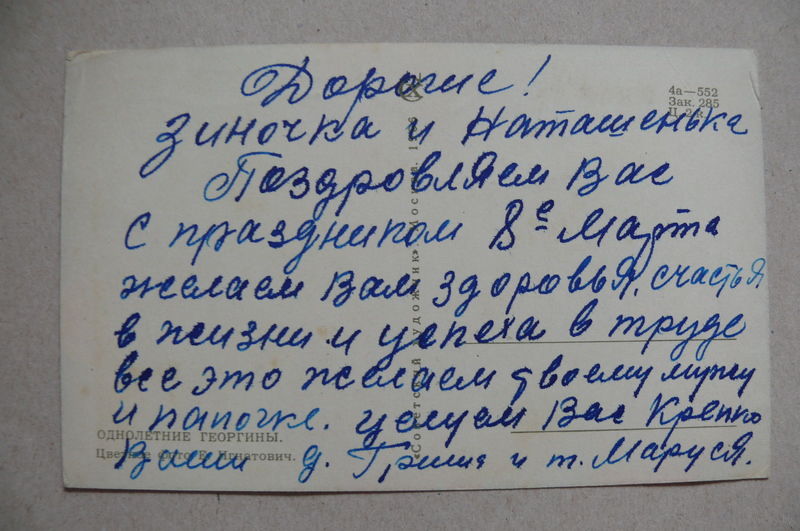 Дорогие!
4а—552
Зак. 285
Ц. 2 к.
Зиночка и Наташенька
Поздровляем Вас
с праздником 8е Марта
желаем Вам здоровья, счастья
в жизни и успеха в труде
все это желаем твоему мужу
и папочке. целуем Вас Крепко
ОДНОЛЕТНИЕ ГЕОРГИНЫ.
Цветное фото Е. Игнатович.
Ваши д. Гриша и т. Маруся.
«Советский художник» Москва.